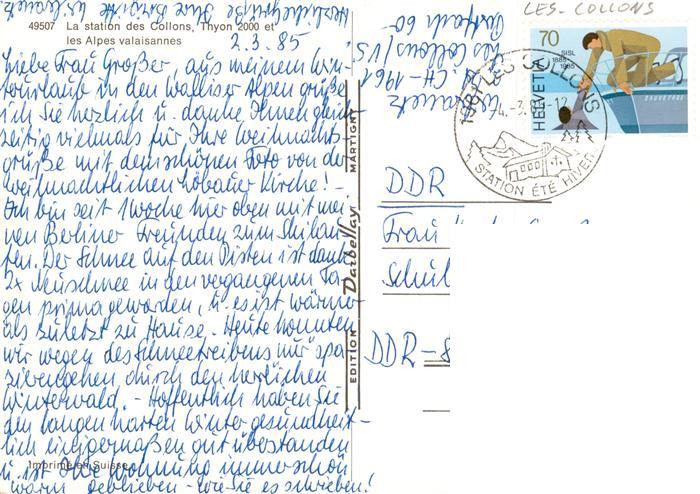 49507 La station des Collons, Thyon 2000 et
les Alpes valaisannes
2.3.85
Liebe Frau Großer, aus meinem Win-
terurlaub in den Walliser Alpen grüße
ich Sie herzlich u. danke Ihnen gleich-
zeitig vielmals für Ihre Weihnachts-
grüße mit dem schönen Foto von der
weihnachtlichen Löbauer Kirche! -
Ich bin seit 1 Woche hier oben mit mei-
nen Berliner Freunden zum Skilau-
fen. Der Schnee auf den Pisten ist dank
2x Neuschnee in den vergangenen Ta-
gen prima geworden, u. es ist wärmer
als zuletzt zu Hause. - Heute konnten
wir wegen des Schneetreibens nur spa-
zierengehen durch den herrlichen
Winterwald. - Hoffentlich haben Sie
den langen harten Winter gesundheit-
lich einigermaßen gut überstanden
u. ist Ihre Wohnung immer schön
warm geblieben - wie Sie es schrieben!
Herzliche Grüße Ihre Brigitte
Imprimé en Suisse
EDITION Darbellay MARTIGNY
CH-1961
Les Collons/VS
Postfach 60
LES-COLLONS
70
SISL
1885
1985
HELVETIA
1961 LES COLLONS
-3.
-12
STATION ÉTÉ HIVER
DDR
Frau
Schul
DDR-8